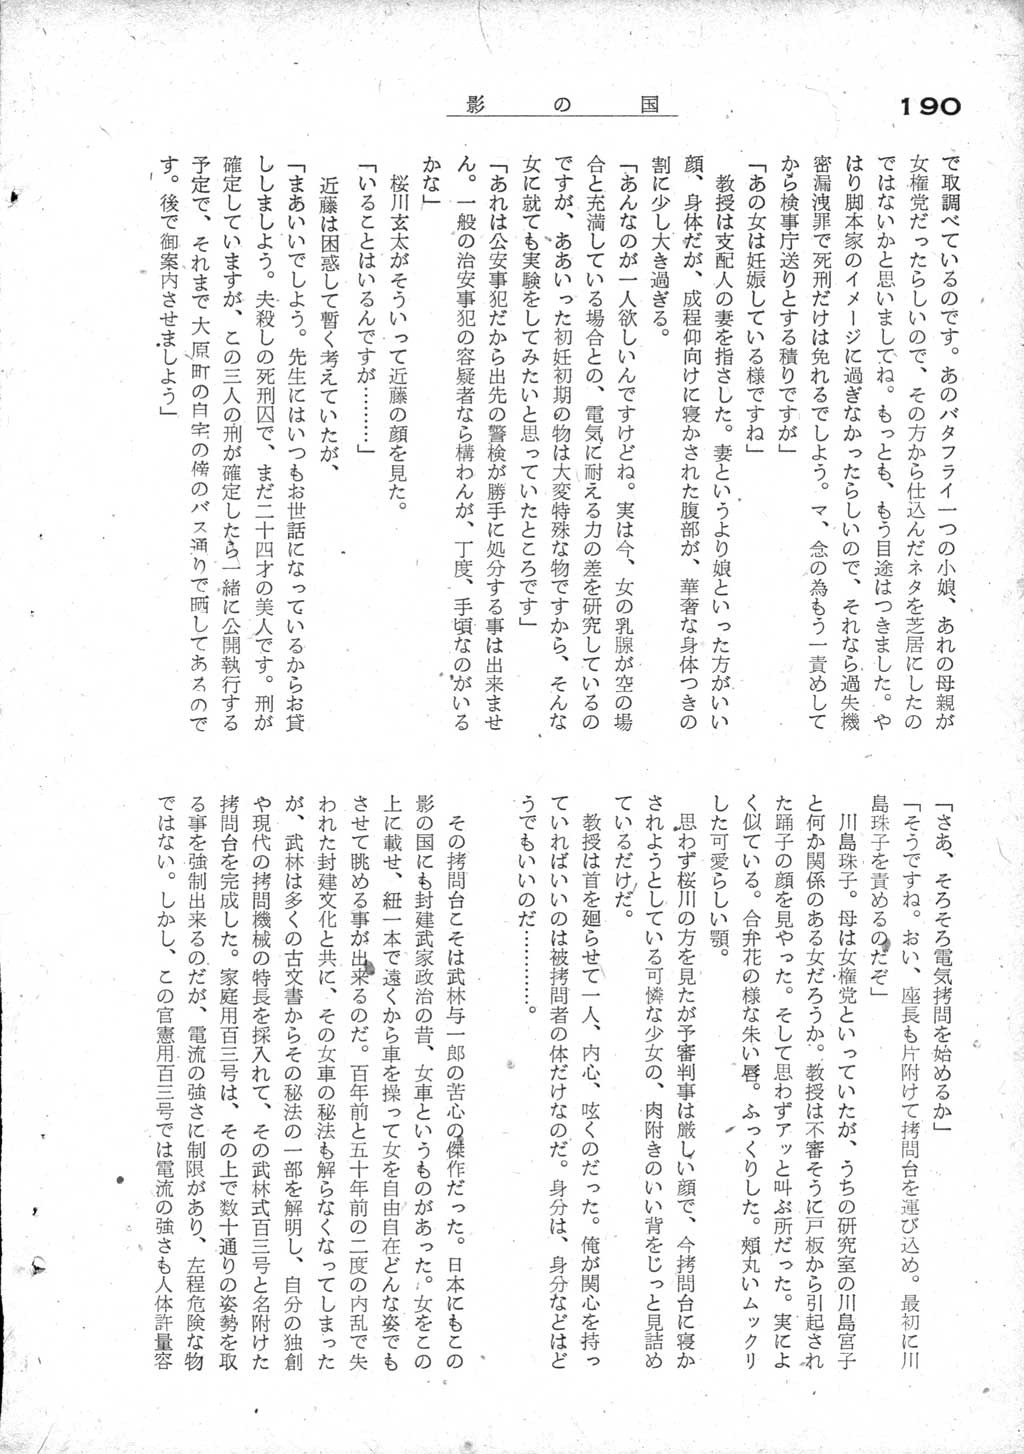 影の国
190
で取調べているのです。あのバタフライ一つの小娘、あれの母親が
女権党だったらしいので、その方から仕込んだネタを芝居にしたの
ではないかと思いましてね。もっとも、もう目途はつきました。や
はり脚本家のイメージに過ぎなかったらしいので、それなら過失機
密漏洩罪で死刑だけは免れるでしよう。マ、念の為もう一責めして
から検事庁送りとする積りですが」
「あの女は妊娠している様ですね」
教授は支配人の妻を指さした。妻というより娘といった方がいい
顔、身体だが、成程仰向けに寝かされた腹部が、華奢な身体つきの
割に少し大き過ぎる。
「あんなのが一人欲しいんですけどね。実は今、女の乳腺が空の場
合と充満している場合との、電気に耐える力の差を研究しているの
ですが、ああいった初妊初期の物は大変特殊な物ですから、そんな
女に就ても実験をしてみたいと思っていたところです」
「あれは公安事犯だから出先の警検が勝手に処分する事は出来ませ
ん。一般の治安事犯の容疑者なら構わんが、丁度、手頃なのがいる
かな」
桜川玄太がそういって近藤の顔を見た。
「いることはいるんですが…………」
近藤は困惑して暫く考えていたが、
「まあいいでしよう。先生にはいつもお世話になっているからお貸
ししましよう。夫殺しの死刑囚で、まだ二十四才の美人です。刑が
確定していますが、この三人の刑が確定したら一緒に公開執行する
予定で、それまで大原町の自宅の傍のバス通りで晒してあるので
す。後で御案内させましよう」
「さあ、そろそろ電気拷問を始めるか」
「そうですね。おい、座長も片附けて拷問台を運び込め。最初に川
島珠子を責めるのだぞ」
川島珠子。母は女権党といっていたが、うちの研究室の川島宮子
と何か関係のある女だろうか。教授は不審そうに戸板から引起され
た踊子の顔を見やった。そして思わずアッと叫ぶ所だった。実によ
く似ている。合弁花の様な朱い唇。ふっくりした。頬丸いムックリ
した可愛らしい顎。
思わず桜川の方を見たが予審判事は厳しい顔で、今拷問台に寝か
されようとしている可憐な少女の、肉附きのいい背をじっと見詰め
ているだけだ。
教授は首を廻らせて一人、内心、呟くのだった。俺が関心を持っ
ていればいいのは被拷問者の体だけなのだ。身分は、身分などはど
うでもいいのだ…………。
その拷問台こそは武林与一郎の苦心の傑作だった。日本にもこの
影の国にも封建武家政治の昔、女車というものがあった。女をこの
上に載せ、紐一本で遠くから車を操って女を自由自在どんな姿でも
させて眺める事が出来るのだ。百年前と五十年前の二度の内乱で失
われた封建文化と共に、その女車の秘法も解らなくなってしまった
が、武林は多くの古文書からその秘法の一部を解明し、自分の独創
や現代の拷問機械の特長を採入れて、その武林式百三号と名附けた
拷問台を完成した。家庭用百三号は、その上で数十通りの姿勢を取
る事を強制出来るのだが、電流の強さに制限があり、左程危険な物
ではない。しかし、この官憲用百三号では電流の強さも人体許量容